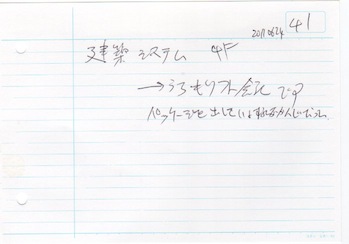 20110624 41
建築システム 4F
→うちもソフト会社です
パッケージを出している